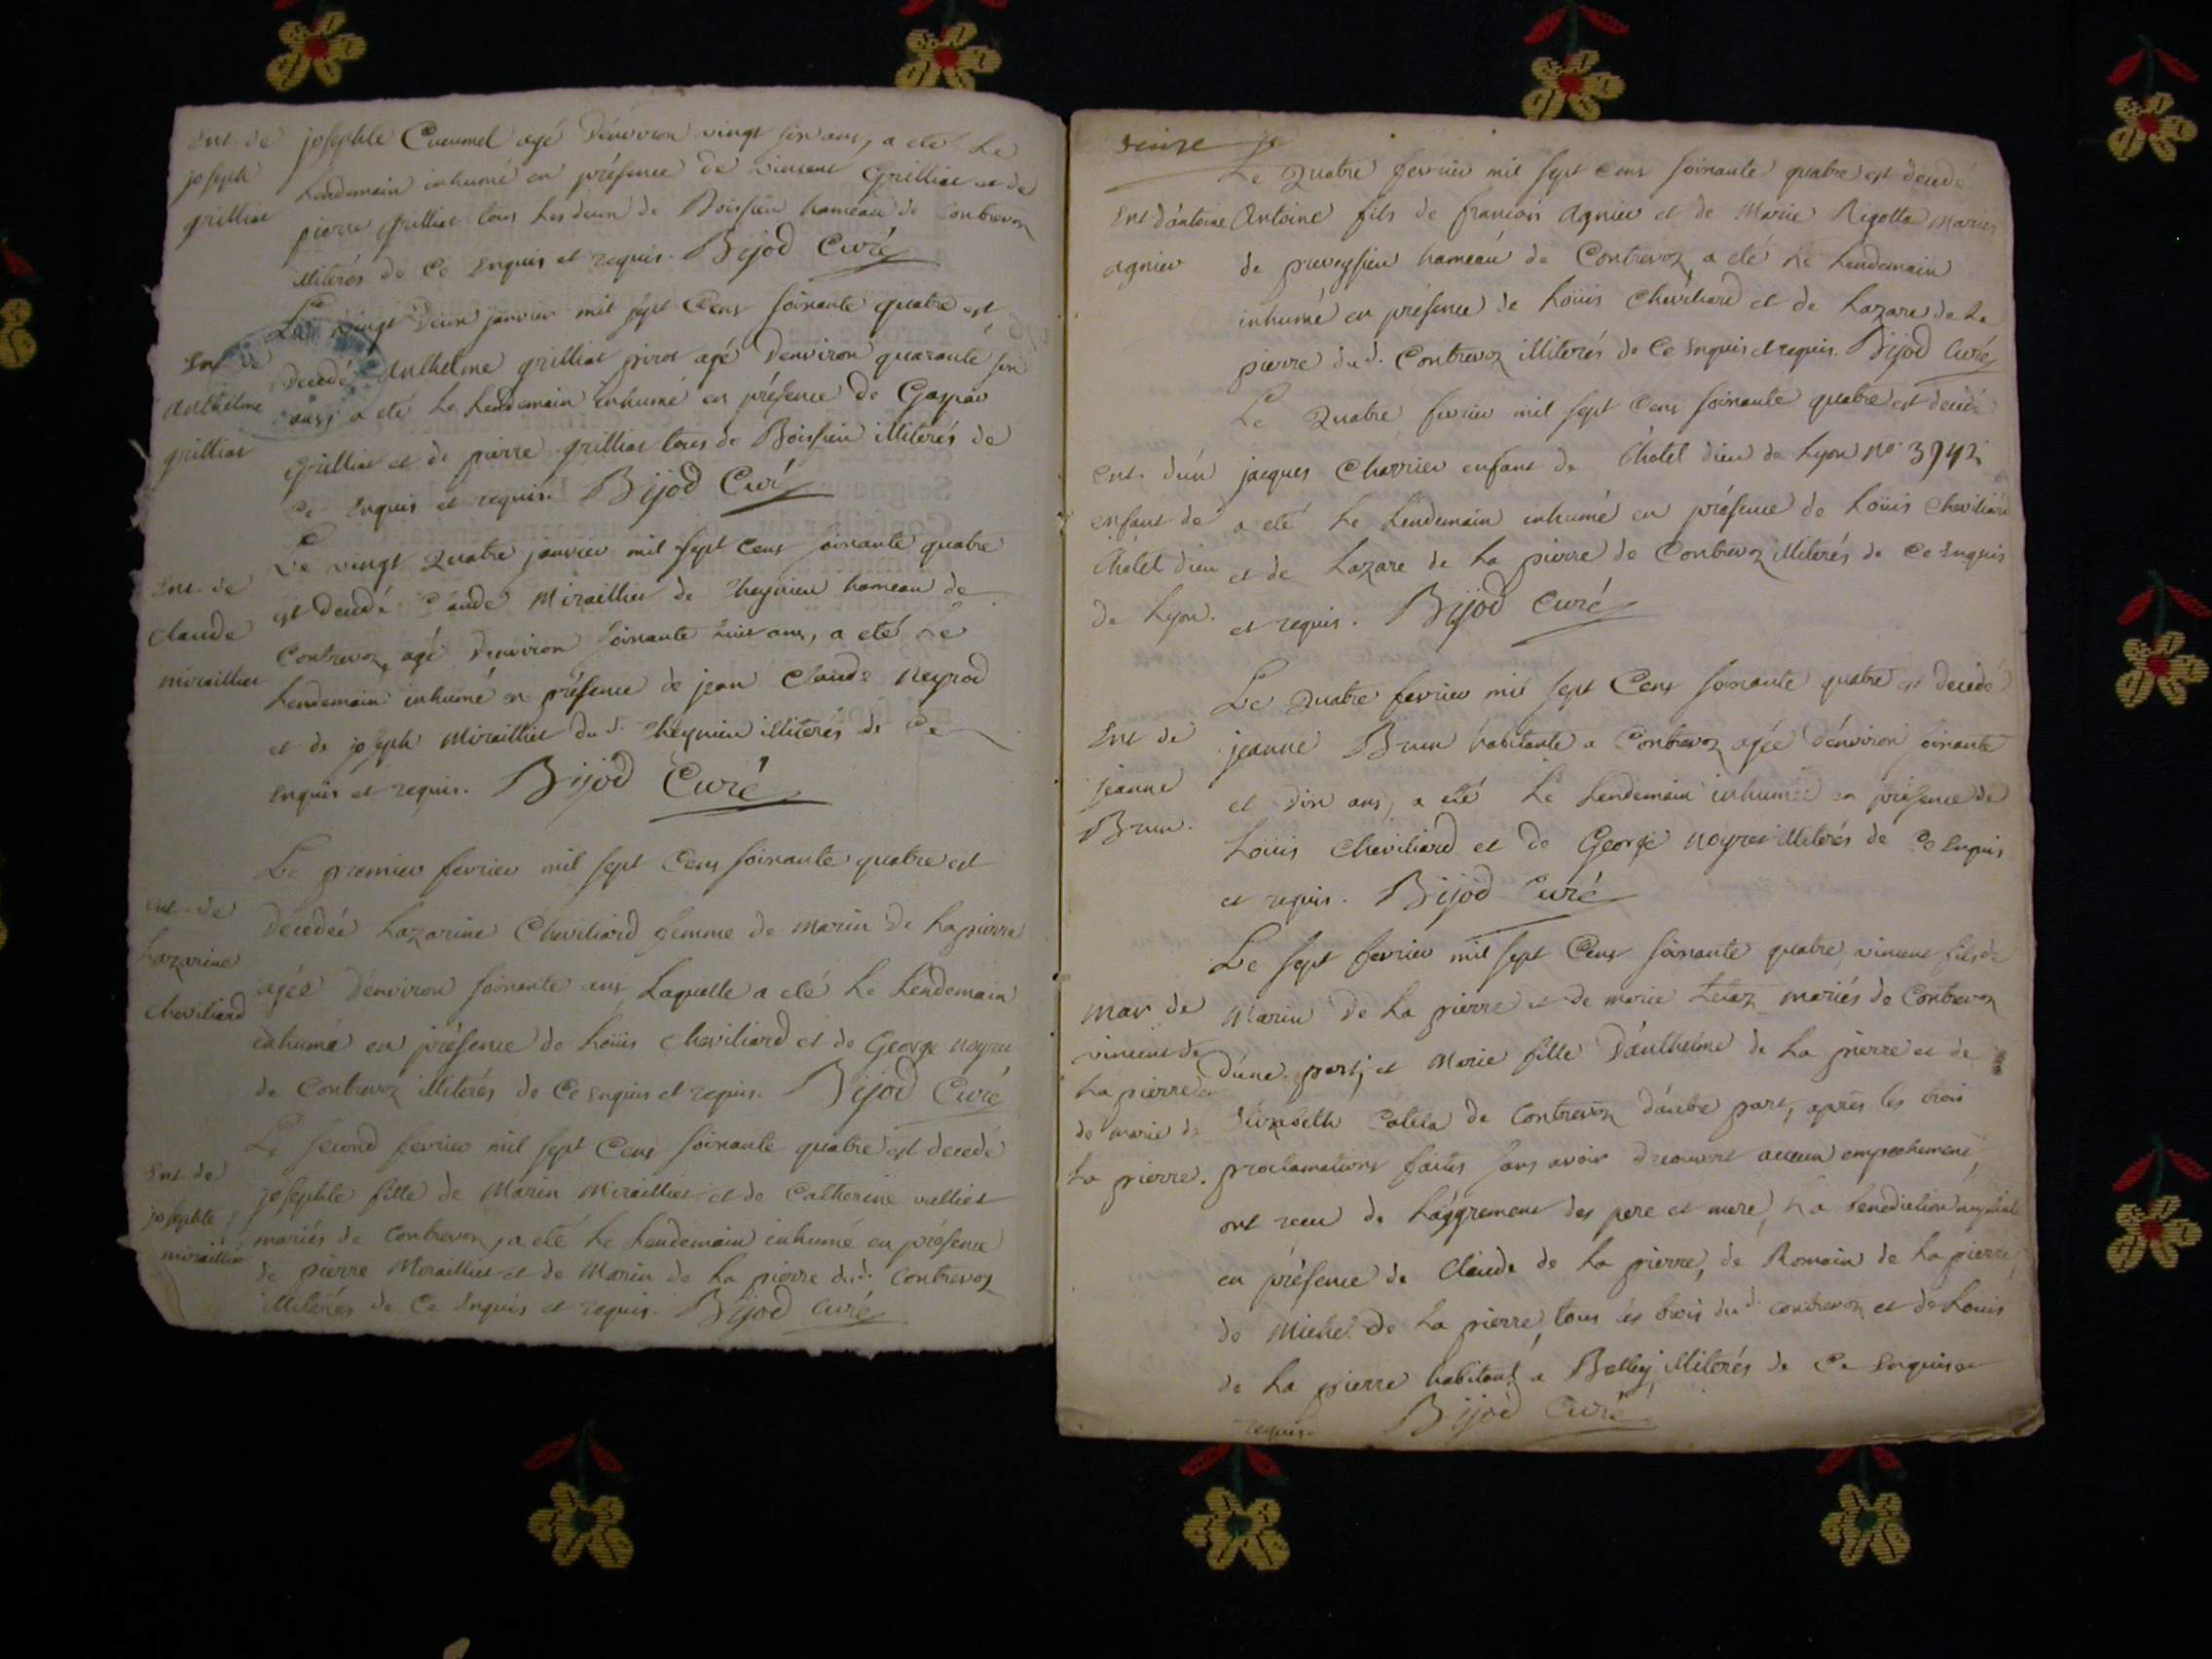 Ent. de
joseph
grilliat
josephte Cucumel agé d'environ vingt six ans, a eté Le
Lendemain inhumé en présence de vincent Grilliat et de
pierre grilliat tous Les deux de Boissieu hameau de Contrevoz
illiterés de Ce Enquis et requis. Bijod Curé
Ent de
Anthelme
grilliat
Le vingt deux janvier mil sept Cens soixante quatre est
decedé Anthelme grilliat pirot agé d'environ quarante six
ans, a eté Le Lendemain inhumé en présence de Gaspar
Grilliat et de pierre grilliat tous de Boissieu illiterés de
Ce Enquis et requis. Bijod Curé
Ent. de
Claude
miraillier
Le vingt Quatre janvier mil sept Cens soixante quatre
est decedé Claude Miraillier de Cheynieu hameau de
Contrevoz, agé d'environ soixante huit ans, a eté Le
Lendemain inhumé en présence de jean Claude Neyrod
et de joseph Miraillier du d. Cheynieu illiterés de Ce
Enquis et requis. Bijod Curé
Ent. de
Lazarine
Cheviliard
Le premier fevrier mil sept Cens soixante quatre est
decedée Lazarine Cheviliard femme de marin de La pierre
agée d'environ soixante ans Laquelle a eté Le Lendemain
inhumé en présence de Loüis Cheviliard et de George noyret
de Contrevoz illiterés de Ce Enquis et requis. Bijod Curé
Ent de
josephte
miraillier
Le second fevrier mil sept Cens soixante quatre est decedé
josephte fille de Marin Miraillier et de Catherine vulliet
mariés de Contrevoz, a eté Le Lendemain inhumé en présence
de pierre Miraillier et de Marin de La pierre du d. Contrevoz
illiterés de Ce Enquis et requis. Bijod Curé
Ent d'antoine
agnier
Le Quatre fevrier mil sept Cens soixante quatre est decedé
Antoine fils de francois Agnier et de Marie Rigotta Mariés
de preveyzieu hameau de Contrevoz a eté Le Lendemain
inhumé en présence de Loüis Cheviliard et de Lazare de La
pierre du d. Contrevoz illiterés de Ce Enquis et requis. Bijod Curé
Ent. d'un
enfant de
l'hotel dieu
de Lyon.
Le Quatre fevrier mil sept Cens soixante quatre est decedé
jacques Charrier enfant de l'hotel dieu de Lyon no. 3942
a eté Le Lendemain inhumé en présence de Loüis Cheviliard
et de Lazare de La pierre de Contrevoz illiterés de Ce Enquis
et requis. Bijod Curé
Ent de
jeanne
Brun.
Le Quatre fevrier mil sept Cens soixante quatre est decedé
jeanne Brun habitante a Contrevoz agée d'environ soixante
et dix ans, a eté Le Lendemain inhumée en présence de
Loüis Cheviliard et de George noyret illiterés de Ce Enquis
et requis. Bijod Curé
Mar de
vincent de
La pierre et
de marie de
La pierre.
Le sept fevrier mil sept Cens soixante quatre, vincent fils de
Marin de La pierre et de marie mariés de Contrevoz
d'une part, et Marie fille d'Anthelme de La pierre et de
Elizabeth de Contrevoz d'autre part, après les trois
proclamations faites sans avoir decouvert aucun empechement,
ont recu de L'aggrement des pere et mere, La benediction nuptiale
en présence de Claude de La pierre, de Romain de La pierre,
de Michel de La pierre, tous les trois du d. contrevoz et de Louis
de La pierre habitant a Belley illiterés de Ce Enquis et
requis. Bijod Curé